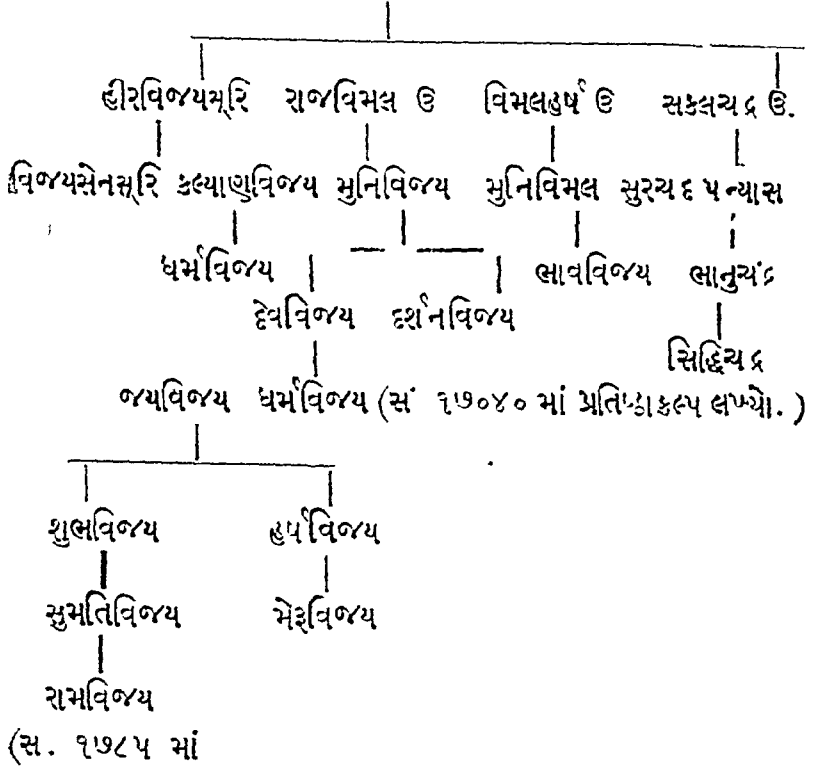 હીરવિજયસૂરિ રાજવિમલ ઉ વિમલહર્ષ ઉ સકલચદ્ર ઉ.
વિજયસેનસૂરિ કલ્યાણવિજય મુનિવિજય મુનિવિમલ સુરચદ પન્યાસ
ધર્મવિજય ભાવવિજય ભાનુચંદ્ર
દેવવિજય દર્શનવિજય
સિદ્ધિચદ્ર
જયવિજય ધર્મવિજય (સં ૧૭૦૪૦ માં પ્રતિષ્ઠાકલ્પ લખ્યો.)
શુભવિજય હર્ષવિજય
સુમતિવિજય મેરૂવિજય
રામવિજય
(સ. ૧૭૮૫ માં